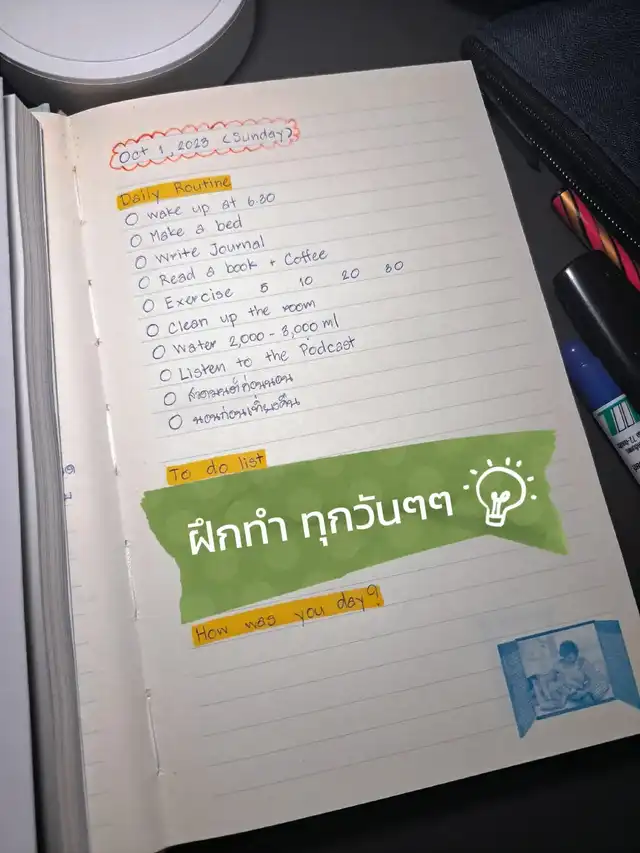 Oct 1, 2023 (Sunday)
Daily Routine
Wake up at 6.30
Make a bed
Write Journal
Read a book + Coffee
Exercise 5 10 20 30
Clean up the room
Water 2,000 - 3,000 ml
Listen to the Podcast
สวดมนต์ก่อนนอน
นอนก่อนเที่ยงคืน
To do list
ฝึกทำ ทุกวันๆๆ
How was you day?